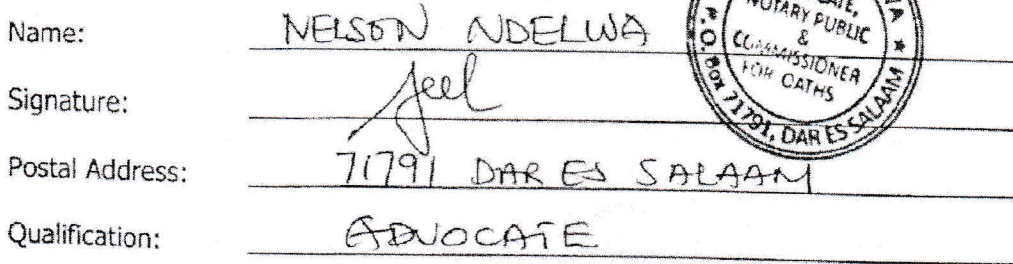 Name: NELSON NDELWA
Signature:
Postal Address: 71791 DAR ES SALAAM
Qualification: ADVOCATE
NOTARY PUBLIC
&
COMMISSIONER
FOR OATHS
P.O. Box 71791, DAR ES SALAAM